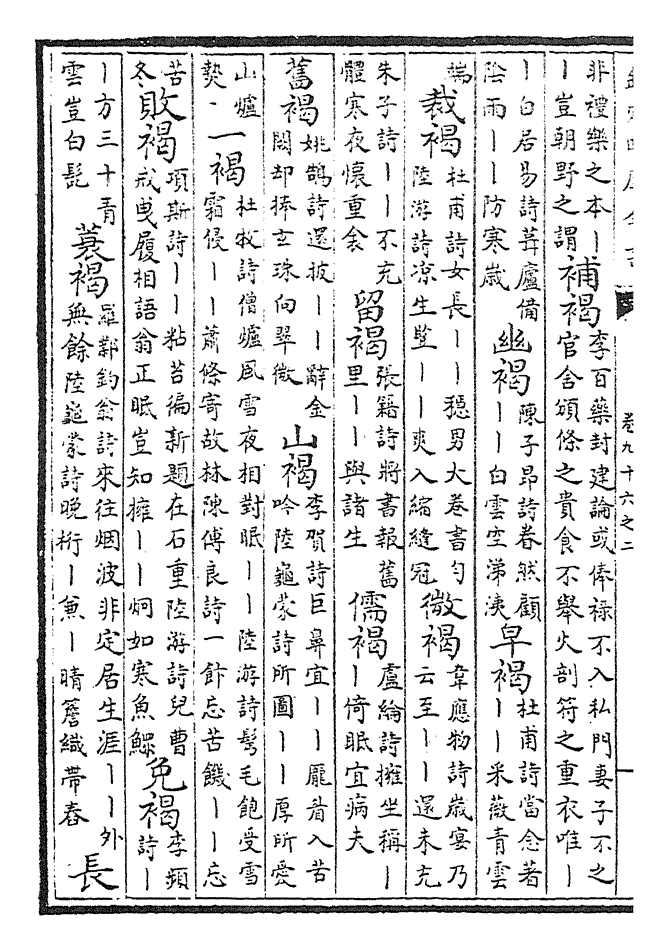 卷九十六之二 一
非禮樂之本｜｜豈朝野之謂補褐李百藥封建論或俸祿不入私門妻子不之官舍頒條之貴食不舉火剖符之重衣唯｜
｜白居易詩葺廬備陰雨｜｜防寒歲幽褐陳子昂詩眷然顧｜｜白雲空涕洟皁褐杜甫詩當念著｜｜采薇青雲
端裁褐杜甫詩女長｜｜穩男大卷書勻陸游詩凉生蹔｜｜爽入縮縫冠微褐韋應物詩歲宴乃云至｜｜還未充
朱子詩｜｜不充體寒夜懷重衾留褐張籍詩將書報舊里｜｜與諸生儒褐盧綸詩擁坐稱｜｜倚眠宜病夫
舊褐姚鵠詩還披｜｜辭金闕却捧玄珠向翠微山褐李賀詩巨鼻宜｜｜龎眉入苦吟陸龜蒙詩所圖｜｜厚所愛
山爐爇丶一褐杜牧詩僧爐風雪夜相對眠｜｜陸游詩髩毛飽受雪霜侵｜｜蕭條寄故林陳傅良詩一飰忘苦饑｜｜忘
苦冬敗褐項斯詩｜｜粘苔徧新題在石重陸游詩兒曹戒曳履相語翁正眠豈知擁｜｜炯如寒魚鰥免褐李頻詩｜
｜方三十青雲豈白髭蓑褐羅鄴釣翁詩來往烟波非定居生涯｜｜外無餘陸龜蒙詩晚桁｜兼｜晴簷織帶舂長